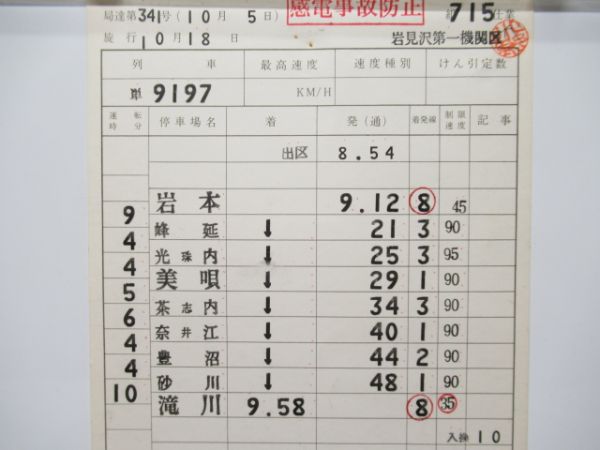 局達第341号(10月 5日) 感電事故防止 715仕業
施行10月18日 岩見沢第一機関区
列 車 最高速度 速度種別 けん引定数
単9197 KM/H
運転時分 停車場名 着 発(通) 着発線 制限速度 記事
出区 8.54
岩本 9.12 8 45
9
峰延 ↓ 21 3 90
4
光珠内 ↓ 25 3 95
4
美唄 ↓ 29 1 90
5
茶志内 ↓ 34 3 90
6
奈井江 ↓ 40 1 90
4
豊沼 ↓ 44 2 90
4
砂川 ↓ 48 1 90
10
滝川 9.58 8 35
入換10